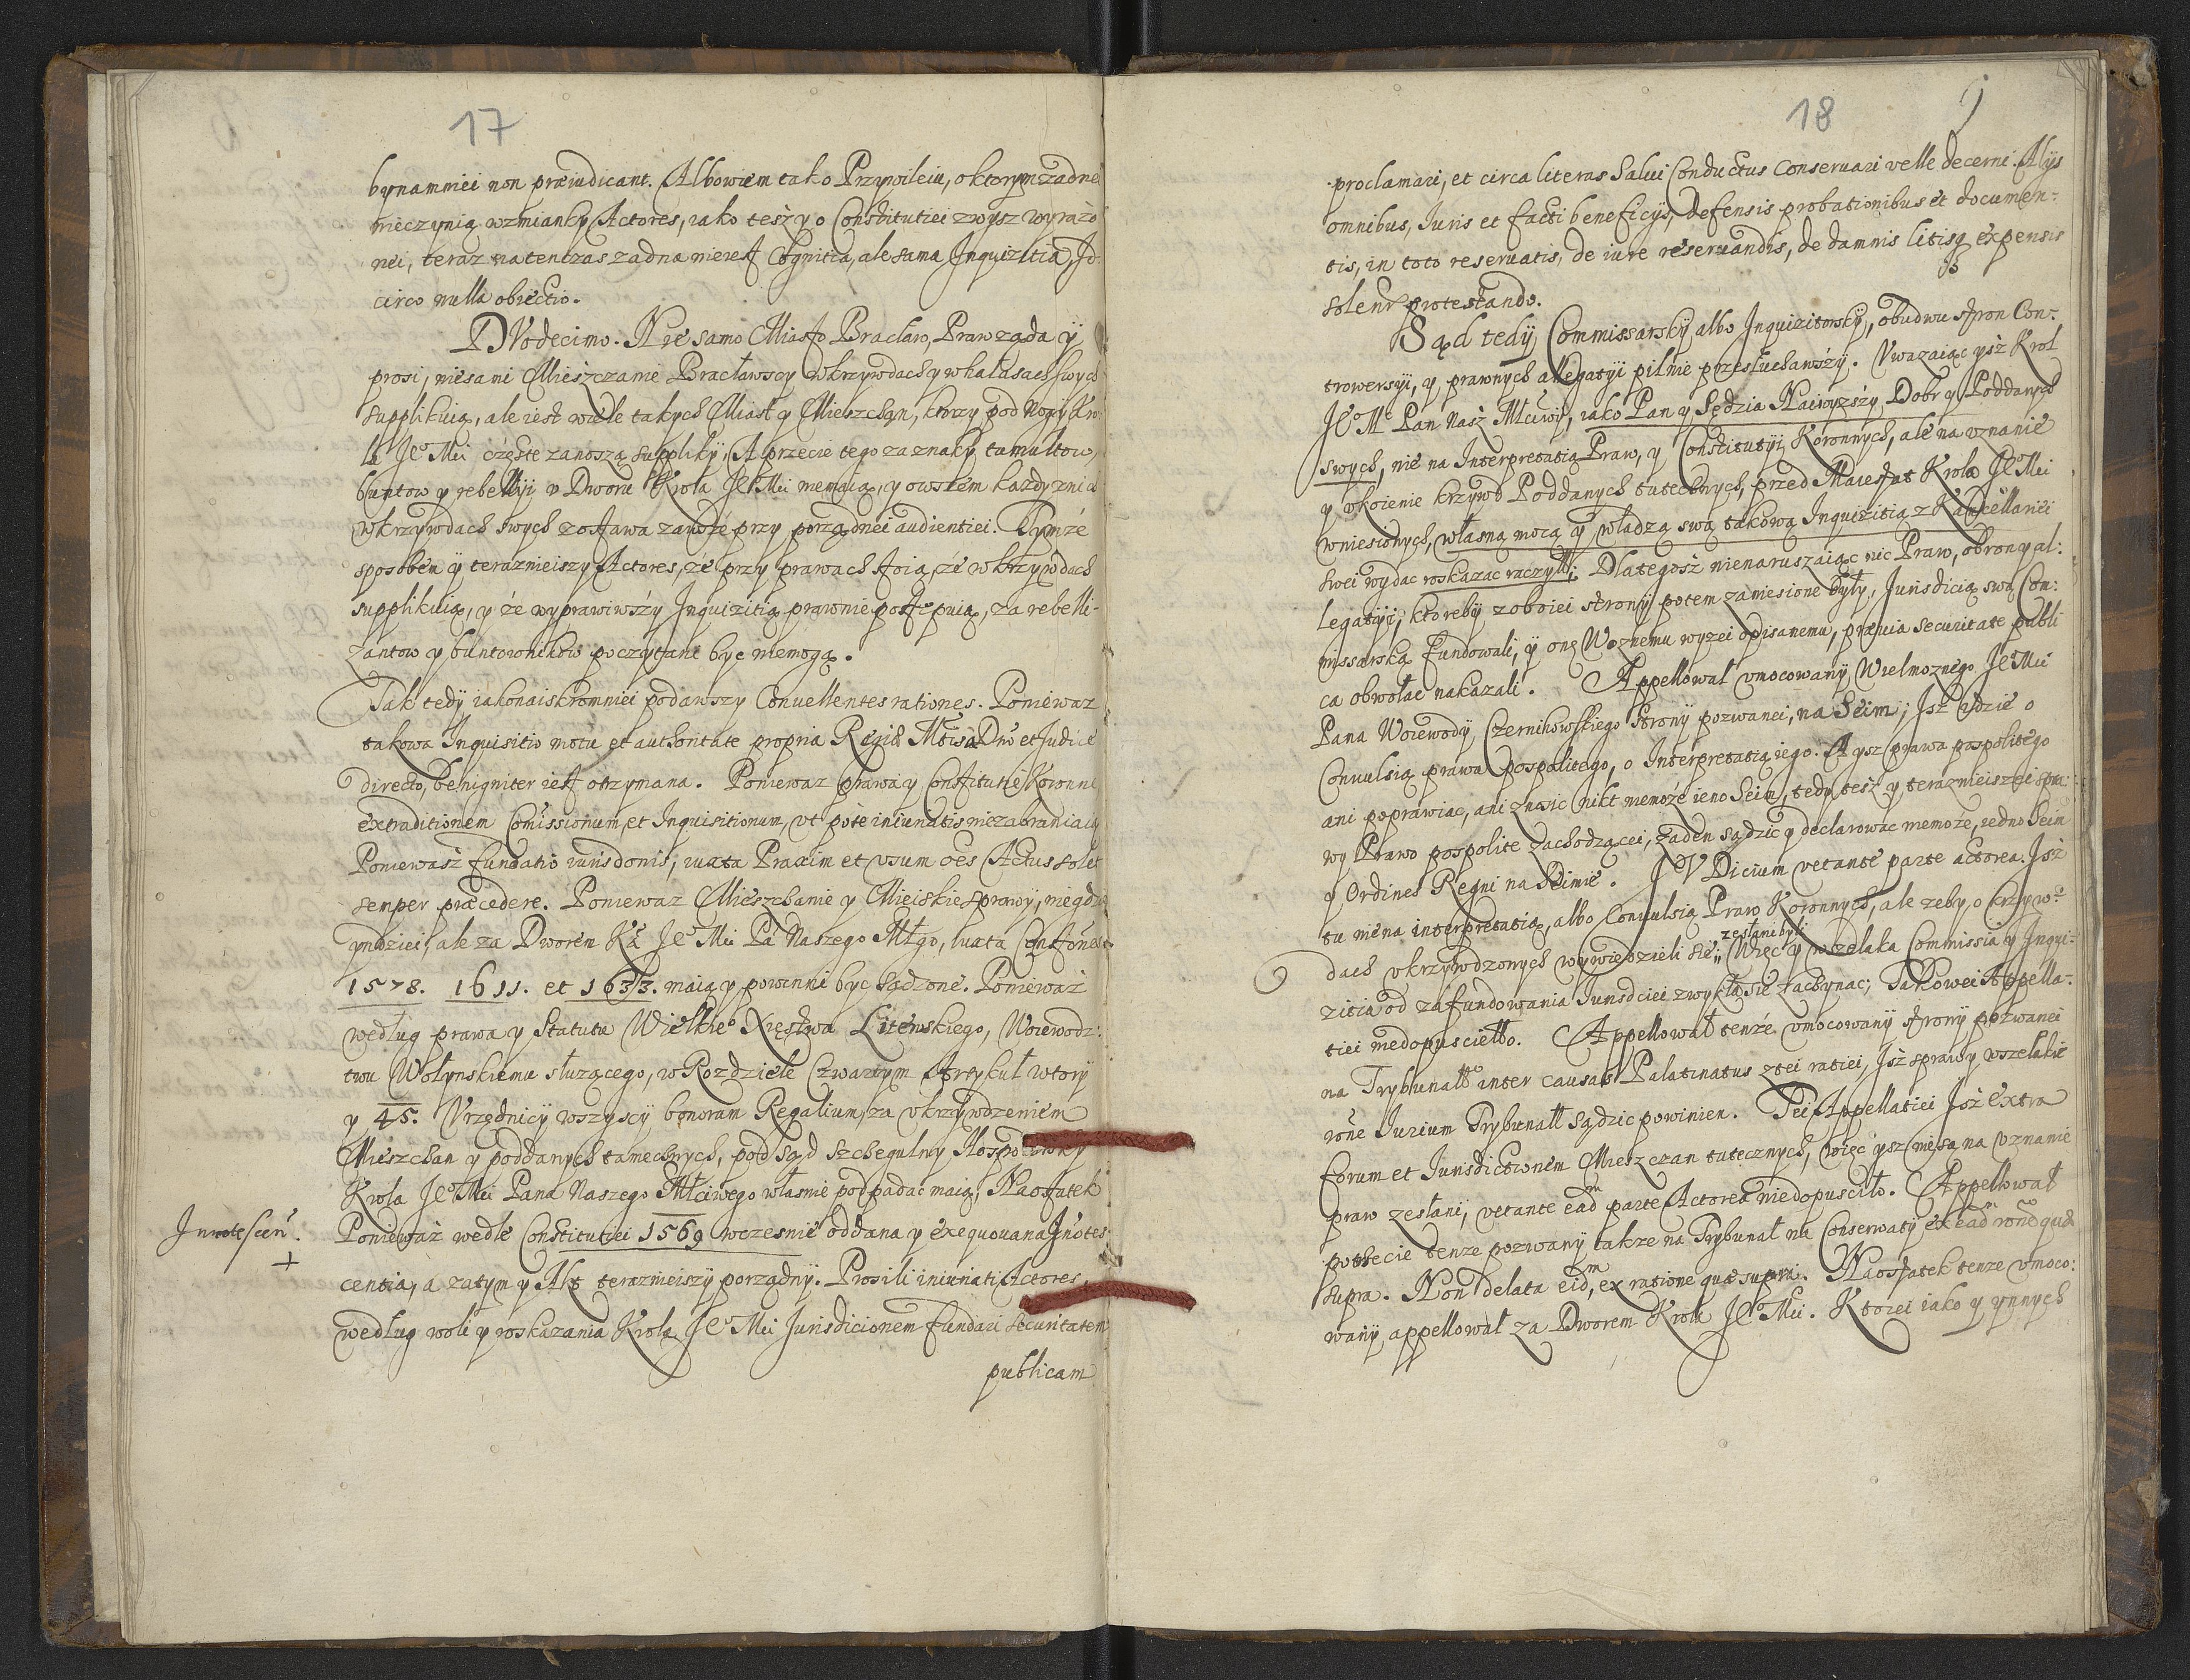 17
bynamniei non præiudicant. Albowiem tako Przywileiu, o ktorym zadne
nieczynią wzmianky Actores, iako tesz y o Constitutiei zwysz wyrazo
nei, teraz natenczas zadna nieiest Cognitia, ale sama Inquizitia, Id
circo nulla obiectio.
DVodecimo. Nie samo Miasto Braclaw, Praw ządą ÿ
prosi, niesami Mieszczanie Bracławscy w krzywdach y w hałasach swych
supplikuią, ale iest wiele takych Miast y Mieszchan, ktorzy pod Nogi Kro
la Je° Mci częste zanoszą suppliky, A przecie tego za znaky tumultow,
buntow y rebelliji v Dworu Krola Je° Mci niemaią, y owszem kazdy z nich
w krzywdach swych zostawa zawsze przy porządnei audientiei. Tymze
sposobem ÿ teraznieiszy Actores, ze przy prawach stoią, ze w krzywdach
supplikuią, y ze wyprawiwszy Inquizitią prawnie postępuią, za rebelli-
zantow y buntownikow poczytani byc niemogą.
Tak tedy iakonaiskromniei podawszy Convellentes rationes. Poniewaz
takowa Inquisitio motu et authoritate propria Regiæ Mtis à Dnō et Judice
directo, benigniter iest otrzymana. Poniewaz prawa y Constitutie Koronne
extraditionem Comissionum et Inquisitionum, vt pote iniuriatis niezabraniaią
Poniewasz fundatio iurisdonis, iuxta Praxim et vsum oēs Actus solet
semper præcedere. Poniewaz Mieszchanie y Mieiskie sprawy, niegdzie
yndziei, ale za Dworem Kā Je° Mci Pā Naszego Młgo, iuxta Constōnes
1578. 1611. et 1633. maią y powinni byc sądzone. Poniewaz
według prawa y Statutu Wielkie° Xięstwa Litewskiego, Woiewodz:
twu Wołynskiemu słuzącego, w Rozdziele Czwartym Artykuł wtory
y 45. Vrzędnicÿ wszyscÿ bonorum Regalium za vkrzywdzeniem
Mieszchan y poddanych tamechnych, pod sąd szchegulny
Krola Je° Mci Pana Naszego Młciwego własnie podpadac maią; Naostatek
Poniewaz wedle Constitutiei 1569 wczesnie oddana y exequowana Jnotes
centia, a zatym y Akt teraznieiszy porządnÿ. Prosili iniuriati Actores,
według woli y roskazania Krola Je° Mci Jurisdicionem fundari securitatem
publicam
Innotescen.
+
18
9
proclamari, et circa literas Salui Conductus Conseruari velle decerni. Alijs
omnibus, Iuris et facti beneficijs, defensis probationibus et documen-
tis, in toto reseruatis, de iure reseruandis, de damnis litisq expensis
solenr protestando.
Sąd tedÿ Commissarskÿ albo Inquizitorskÿ, obudwu stron Con-
trowersyi, y prawnych allegatÿi pilnie przesłuchawszÿ. Vwazaiąc ysz Krol
Je° Mć Pan Nasz Młciwÿ, iako Pan y Sędzia Naiwyzszÿ Dobr y Poddanych
swych, nie na Interpretatią Praw, y Constitutÿi Koronnych, ale na vznanie
y vkoienie krzywd Poddanych tutechnych, przed Maiestat Krola Je° Mci
wniesionych, własną mocą ÿ władzą swą takową Inquizitią z Kancellariei
swei wydac roskazac raczÿł; Dlategosz nienaruszaiąc nic Praw, obron y al:
legatÿi, ktoreby z oboiei stronÿ potem zaniesione byłÿ, Jurisdicią swą Com:
missarską fundowali, ÿ onę Woznemu wyzei opisanemu, præuia securitate publi
ca obwołac nakazali. Appellował vmocowanÿ Wielmoznego Je° Mci
Pana Woiewody Czernihowskiego Strony pozwanei, na Seim; Isz ydzie o
Conuulsią prawa pospolitego, o Interpretatią iego. A ysz prawa pospolitego
ani poprawiac, ani znosic nikt niemoze ieno Seim, tedy tesz y teraznieiszei spra:
wy Prawo pospolite zachodzącei, zaden sądzic y declarowac niemoze, iedno Seim
y Ordines Regni na Seimie. IVDicium vetante parte actorea. Isz
tu nie na interpretatią, albo Conuulsią Praw Koronnych, ale zeby o krzyw-
zesłani byli
dach vkrzywdzonych wywiedzieli się; Więc y wszelaka Commissia y Inqui-
zitia od zafundowania Iurisdciei zwykła się zachynac; Takowei Appella-
tiei niedopusciełło. Appellował tenze vmocowanÿ strony pozwanei
na Trybunałł inter causas Palatinatus z tei ratiei, Isz sprawy wszelakie
rōne Iurium Trybunałł sądzic powinien. Tei Appellatiei Isz extra
forum et Iurisdictionem Mieszczan tutecznych, więc ysz nie są na vznanie
praw zesłani, vetante eadm parte Actorea niedopusciło. Appellował
potrzecie tenze pozwany takze na Trybunał na Conserwaty ex eadm rōne quā
supra. Non delata eidm, ex ratione quæ supra. Naostatek tenze vmoco:
wany appellował za Dworem Krola Je° Mci. Ktorei iako y ynnych